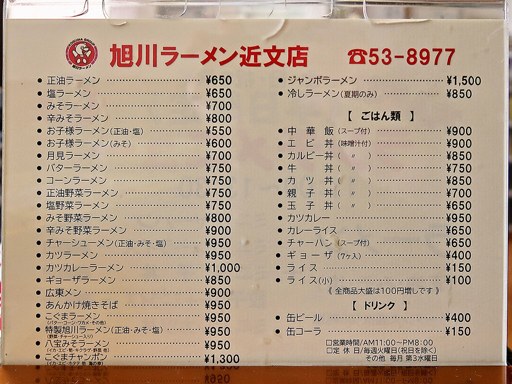 旭川ラーメン近文店 ☎53-8977
● 正油ラーメン ¥650
● 塩ラーメン ¥650
● みそラーメン ¥700
● 辛みそラーメン ¥800
● お子様ラーメン(正油・塩) ¥550
● お子様ラーメン(みそ) ¥600
● 月見ラーメン ¥700
● バターラーメン ¥750
● コーンラーメン ¥750
● 正油野菜ラーメン ¥750
● 塩野菜ラーメン ¥750
● みそ野菜ラーメン ¥800
● 辛みそ野菜ラーメン ¥900
● チャーシューメン(正油・みそ・塩) ¥950
● カツラーメン ¥950
● カツカレーラーメン ¥1,000
● ギョーザラーメン ¥850
● 広東メン ¥900
● あんかけ焼きそば ¥950
● こぐまラーメン ¥950
(バター・コーン・ワカメ・その他)
● 特製旭川ラーメン(正油・みそ・塩) ¥950
(野菜・チャーシュー入り)
● 八宝みそラーメン ¥950
● こぐまチャンポン ¥1,300
● ジャンボラーメン ¥1,500
● 冷しラーメン(夏期のみ) ¥850
【 ごはん類 】
● 中華飯(スープ付) ¥900
● エビ丼(味噌汁付) ¥900
● カルビー丼( 〃 ) ¥850
● 牛丼( 〃 ) ¥750
● カツ丼( 〃 ) ¥850
● 親子丼( 〃 ) ¥700
● 玉子丼( 〃 ) ¥650
● カツカレー ¥950
● カレーライス ¥650
● チャーハン(スープ付) ¥650
● ギョーザ(7ヶ入) ¥400
● ライス ¥150
● ライス(小) ¥100
《 全商品大盛は100円増しです 》
【 ドリンク 】
● 缶ビール ¥400
● 缶コーラ ¥150
□営業時間/AM11:00〜PM8:00
□定休日/毎週火曜日(祝日を除く)
その他 毎月 第3水曜日